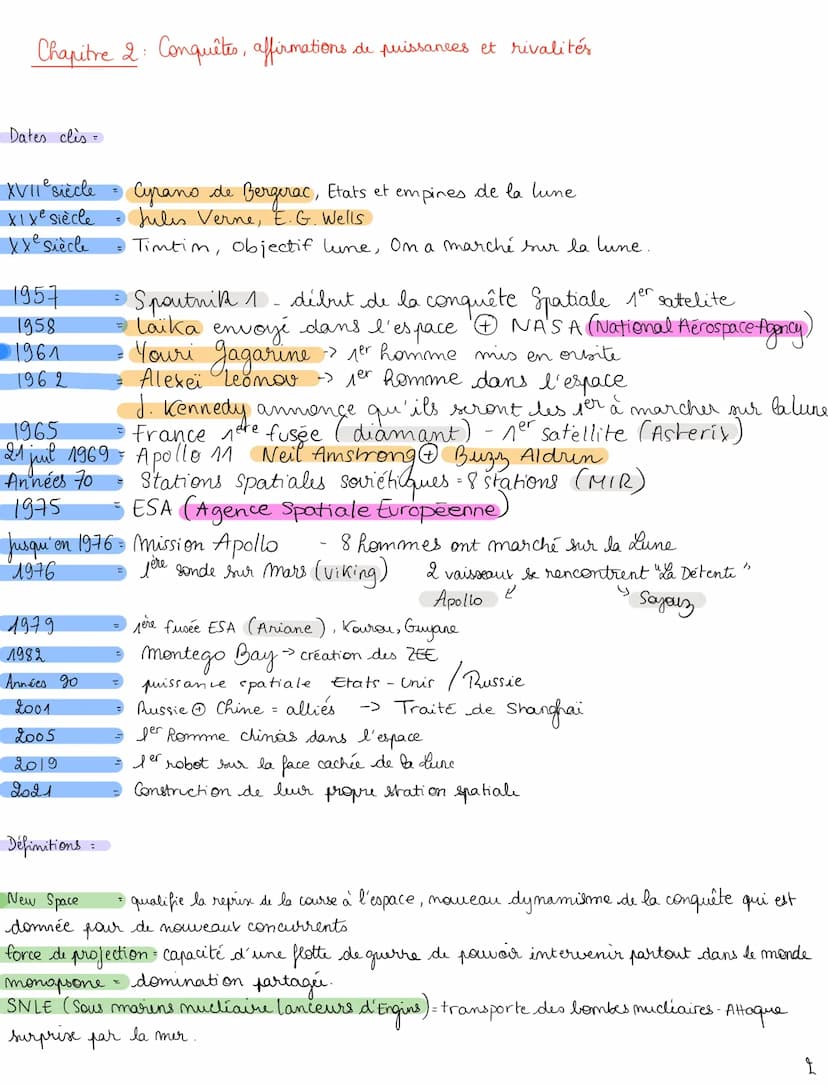 Chapitre 2 : Conquêtes, affirmations de puissances et rivalités
Dates clès =
XVIIe siècle = Cyrano de Bergerac, Etats et empires de la lune
XIXe siècle = Jules Verne, E.G. Wells
XXe siècle = Timtim, Objectif lune, On a marché sur la lune.
1957 = Spoutnik 1 - début de la conquête Spatiale 1er satelite
1958 = Laïka envoyé dans l'espace ⊕ NASA (National Aérospace Agency)
1961 = Youri Gagarine -> 1er homme mis en orbite
1962 = Alexeï Leonov -> 1er homme dans l'espace
J. Kennedy annonce qu'ils seront les 1er à marcher sur la lune
1965 = France 1ère fusée (diamant) - 1er satellite (Asterix)
21 juil 1969 = Apollo 11 Neil Amstrong ⊕ Buzz Aldrin
Années 70 = Stations spatiales soviétiques = 8 stations (MIR)
1975 = ESA (Agence Spatiale Européenne)
Jusqu'en 1976 = Mission Apollo - 8 hommes ont marché sur la Lune
1976 = 1ère sonde sur Mars (Viking) 2 vaisseaux se rencontrent "La Détente"
Apollo Soyouz
1979 = 1ère fusée ESA (Ariane), Kourou, Guyane
1982 = Montego Bay -> création des ZEE
Années 90 = puissance spatiale Etats-Unis / Russie
2001 = Russie ⊕ Chine = alliés -> Traité de Shanghaï
2005 = 1er homme chinois dans l'espace
2019 = 1er robot sur la face cachée de la Lune
2021 = Construction de leur propre station spatiale
Définitions :
New Space = qualifie la reprise de la course à l'espace, nouveau dynamisme de la conquête qui est
donnée par de nouveaux concurrents
force de projection = capacité d'une flotte de guerre de pouvoir intervenir partout dans le monde
monopsone = domination partagée.
SNLE (Sous marins nucléaire lanceurs d'Engins) = transporte des bombes nucléaires - Attaque
surprise par la mer.
1